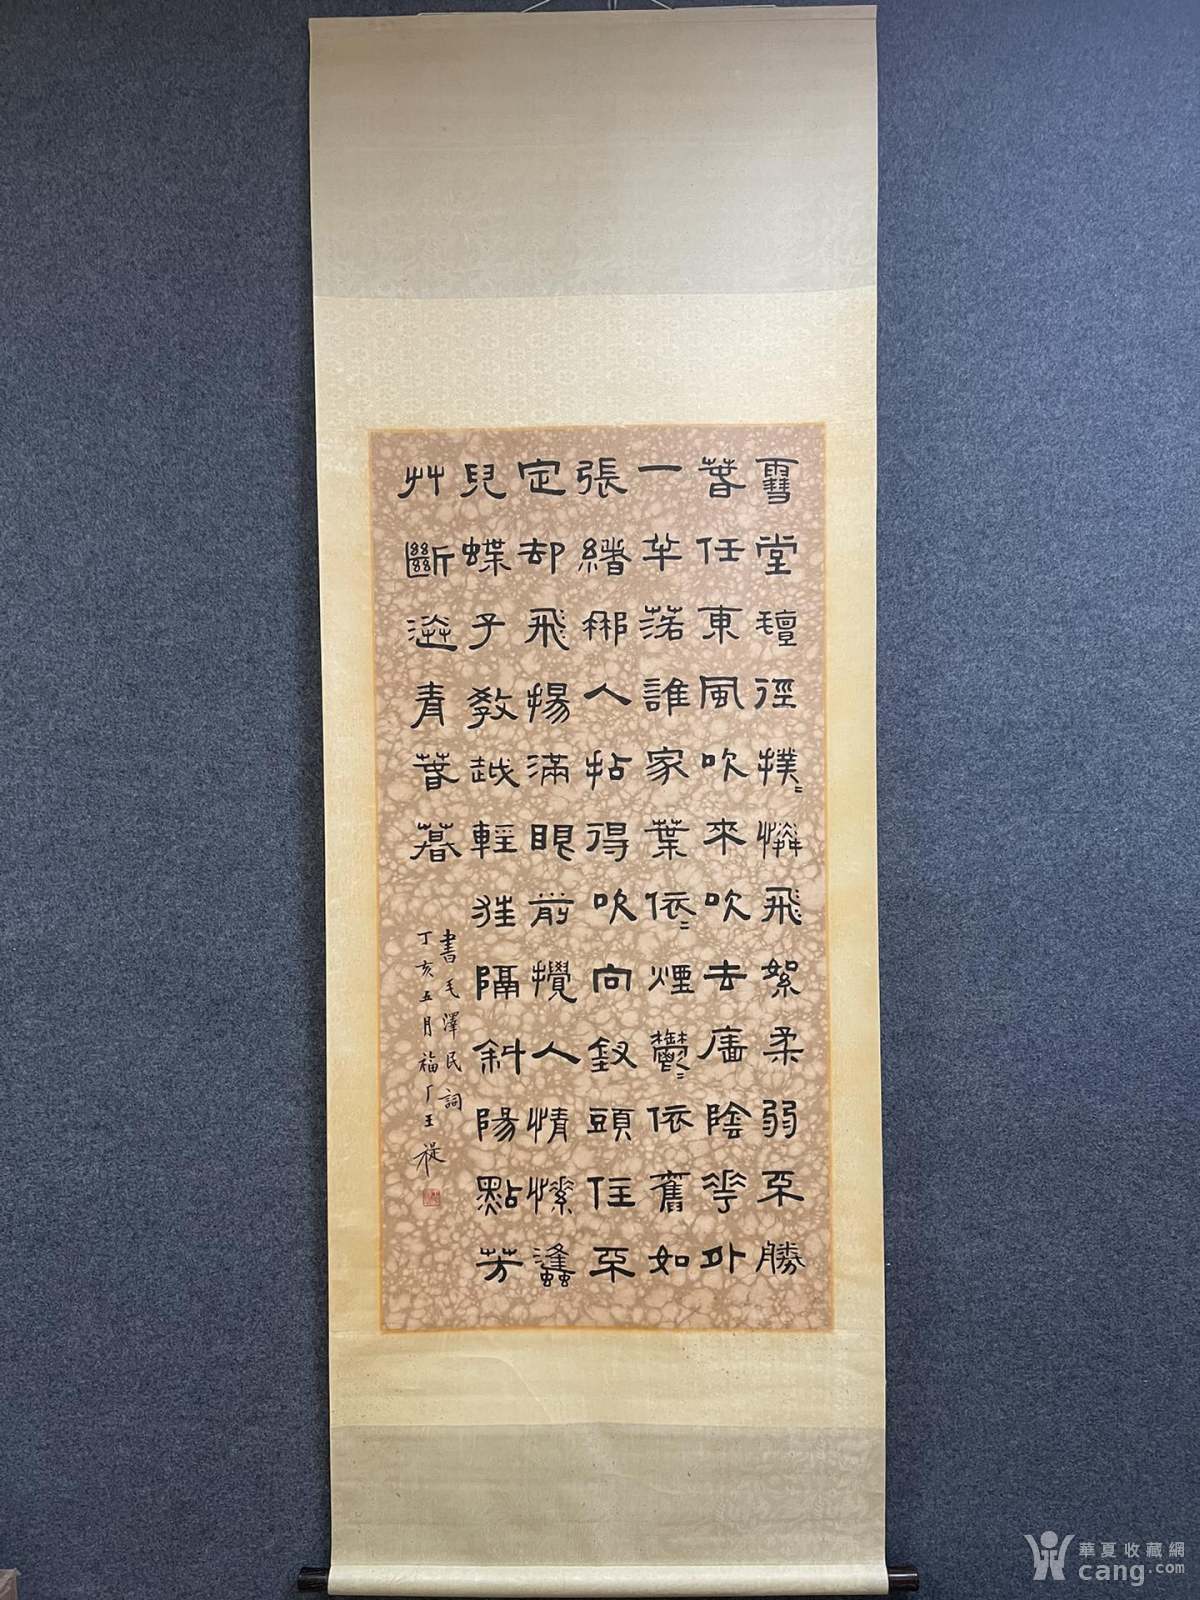 雪堂氈徑撲〻憐飛絮柔弱不勝
春任東風吹來吹去廧陰花外
一半落誰家葉依〻煙鬱〻依舊如
張緒那人拈得吹向釵頭住不
定却飛揚滿眼前攪人情愫蠭
兒蝶子教越輕狂隔斜陽點芳
艸斷送青春暮
書毛澤民詞
丁亥五月福厂王禔
華夏收藏網
cang.com